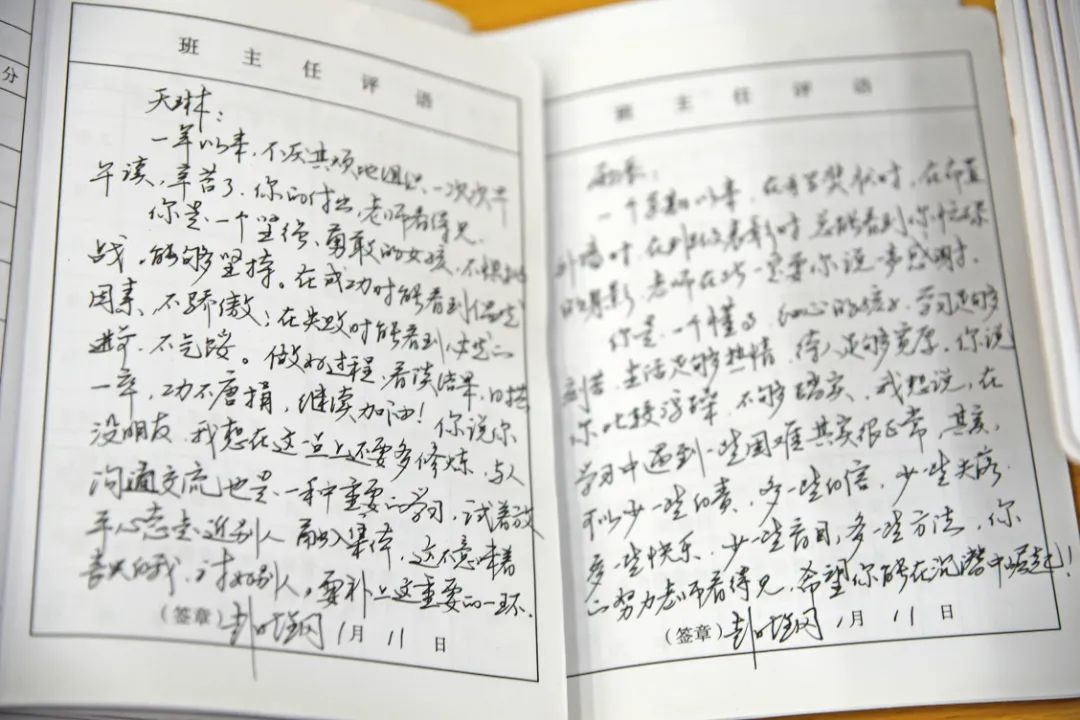 分
班主任评语
天琳:
一年以来,不厌其烦地组织一次次早
午读,辛苦了,你的付出,老师看得见.
你是一个坚强、勇敢的女孩,不惧
战。能够坚持。在成功时能看到
因素、不骄傲;在失败时能看到
进步,不气馁。做好过程,看淡结果,日拱
一卒,功不唐捐,继续加油!你说你
没朋友,我想在这一点上还要多修炼,与人
沟通交流也是一种重要的学习,试着放
平心态走近别人,融入集体,这不意味着
丢失自我,讨好别人,要补上这重要的一环.
(签章) 1月11日
班主任评语
一个学期以来,在
时,在 时总能看到你忙碌
的身影,老师在此一定要你说一声感谢.
你是一个懂事、细心的孩子,学习足够
刻苦,生活足够热情,待人足够宽厚,你说
你比较浮躁,不够踏实,我想说,在
学习中遇到一些困难其实很正常,其实,
可以少一些自责,多一些自信,少一些失落.
多一些快乐.少一些盲目,多一些方法,你
的努力老师看得见,希望你能在沉潜中崛起!
(签章) 1月11日